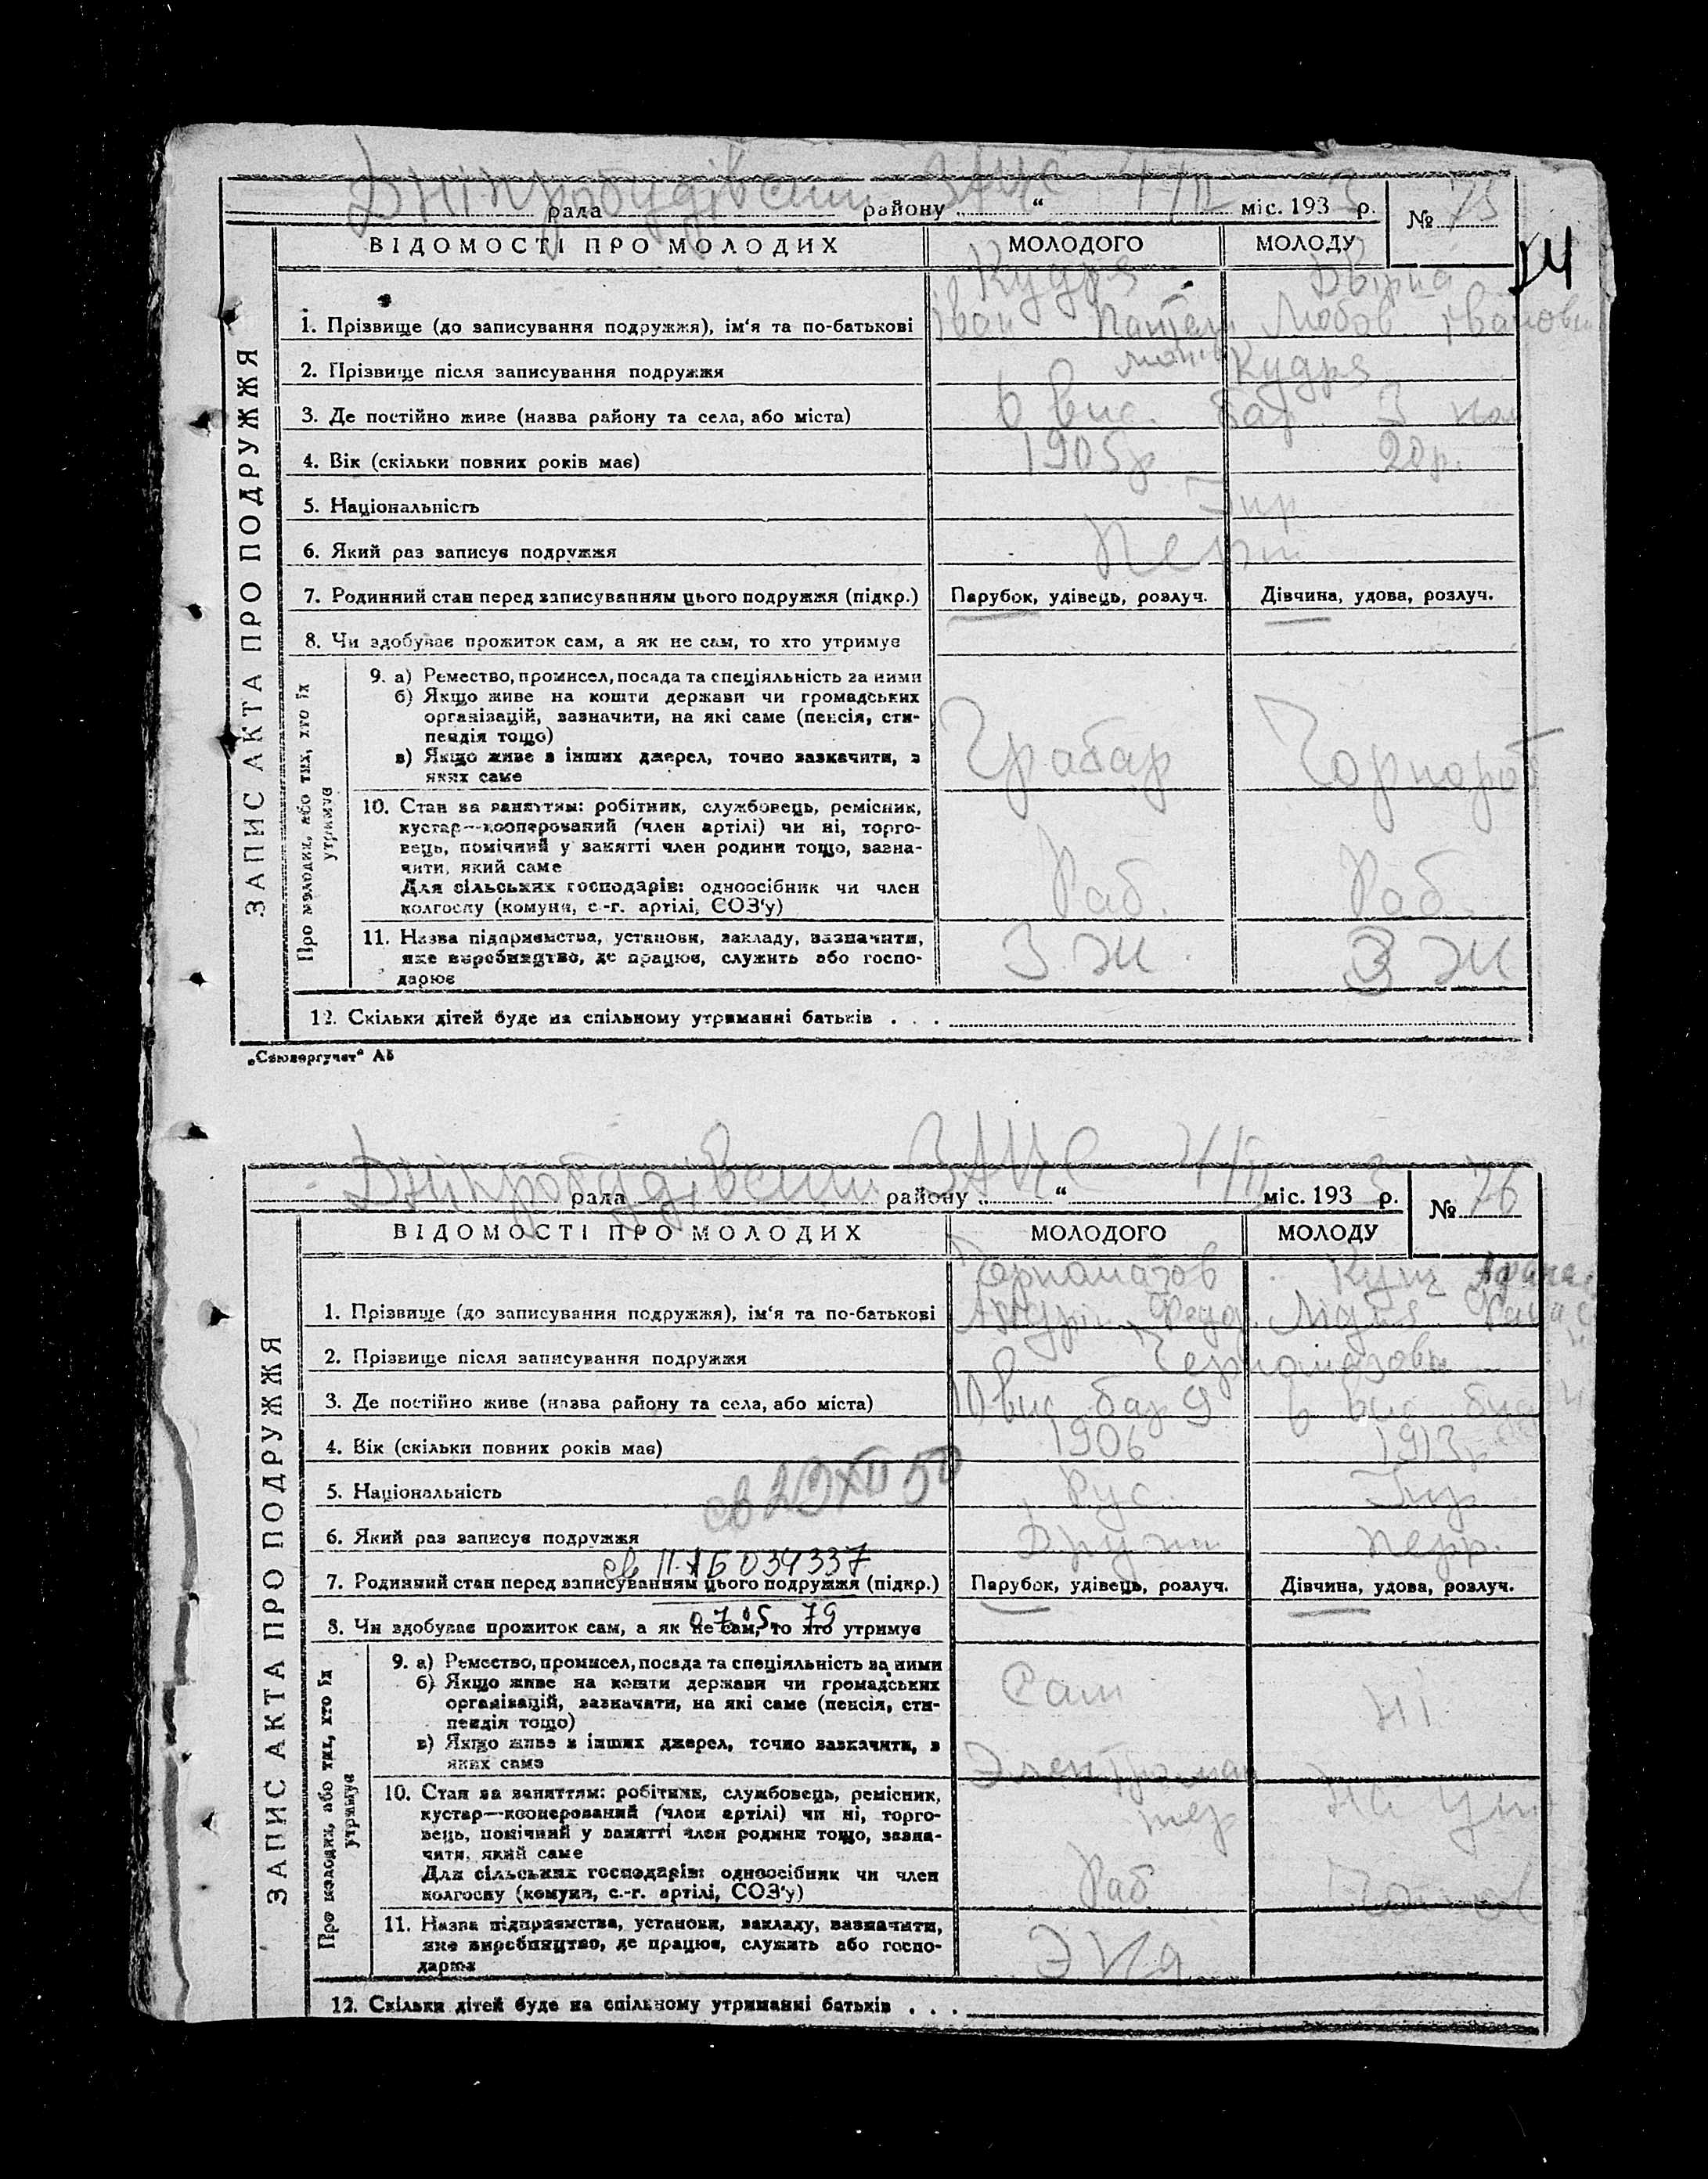 Дніпробудівськ ЗАГС 4/II
рада району " міс. 193 3 р. № 75
ВІДОМОСТІ ПРО МОЛОДИХ МОЛОДОГО МОЛОДУ
14
Кудря
1. Прізвище (до записування подружжя), ім'я та по-батькові Іван Любов Іванов
2. Прізвище після записування подружжя Кудря
3. Де постійно живе (назва району та села, або міста) 6 вис. бар 3
4. Вік (скільки повних років має) 1905р 20р.
5. Національність Укр
6. Який раз записує подружжя Перш
7. Родинний стан перед записуванням цього подружжя (підкр.) Парубок, удівець, розлуч. Дівчина, удова, розлуч.
8. Чи здобуває прожиток сам, а як не сам, то хто утримує
ЗАПИС АКТА ПРО ПОДРУЖЖЯ
Про молодих, або тих, хто їх утримує
9. а) Ремество, промисел, посада та спеціяльність за ними
б) Якщо живе на кошти держави чи громадських
організацій, зазначити, на які саме (пенсія, сти-
пендія тощо)
в) Якщо живе з інших джерел, точно зазначити, з
яких саме
Грабар Чорнороб
10. Стан за заняттям: робітник, службовець, ремісник,
кустар—кооперований (член артілі) чи ні, торго-
вець, помічний у занятті член родини тощо, зазна-
чити, який саме
Для сільських господарів: одноосібник чи член
колгоспу (комуни, с.-г. артілі, СОЗ'у)
Раб. Раб.
11. Назва підприємства, установи, закладу, зазначити,
яке виробництво, де працює, служить або госпо-
дарює
З Ж З Ж
12. Скільки дітей буде на спільному утриманні батьків . . .
„Союзоргучет" А5
Дніпробудівськ ЗАГС 4/II
рада району " міс. 193 3 р. № 76
ВІДОМОСТІ ПРО МОЛОДИХ МОЛОДОГО МОЛОДУ
Чорномазов Кущ
1. Прізвище (до записування подружжя), ім'я та по-батькові Андрій Федор. Лідія
2. Прізвище після записування подружжя Черномазов
3. Де постійно живе (назва району та села, або міста) 10 вис бар 9 6 вис
4. Вік (скільки повних років має) 1906 1913р
св 29 XII 50
5. Національність Рус. Укр
6. Який раз записує подружжя Другий перш.
св II-ЯБ 034337
7. Родинний стан перед записуванням цього подружжя (підкр.) Парубок, удівець, розлуч. Дівчина, удова, розлуч.
07.05.79
8. Чи здобуває прожиток сам, а як не сам, то хто утримує
ЗАПИС АКТА ПРО ПОДРУЖЖЯ
Про молодих, або тих, хто їх утримує
9. а) Ремество, промисел, посада та спеціяльність за ними
б) Якщо живе на кошти держави чи громадських
організацій, зазначити, на які саме (пенсія, сти-
пендія тощо)
в) Якщо живе з інших джерел, точно зазначити, з
яких саме
Сам Ні
Электромонтер На ут
10. Стан за заняттям: робітник, службовець, ремісник,
кустар—кооперований (член артілі) чи ні, торго-
вець, помічний у занятті член родини тощо, зазна-
чити, який саме
Для сільських господарів: одноосібник чи член
колгоспу (комуни, с.-г. артілі, СОЗ'у)
Раб
11. Назва підприємства, установи, закладу, зазначити,
яке виробництво, де працює, служить або госпо-
дарює
12. Скільки дітей буде на спільному утриманні батьків . . .